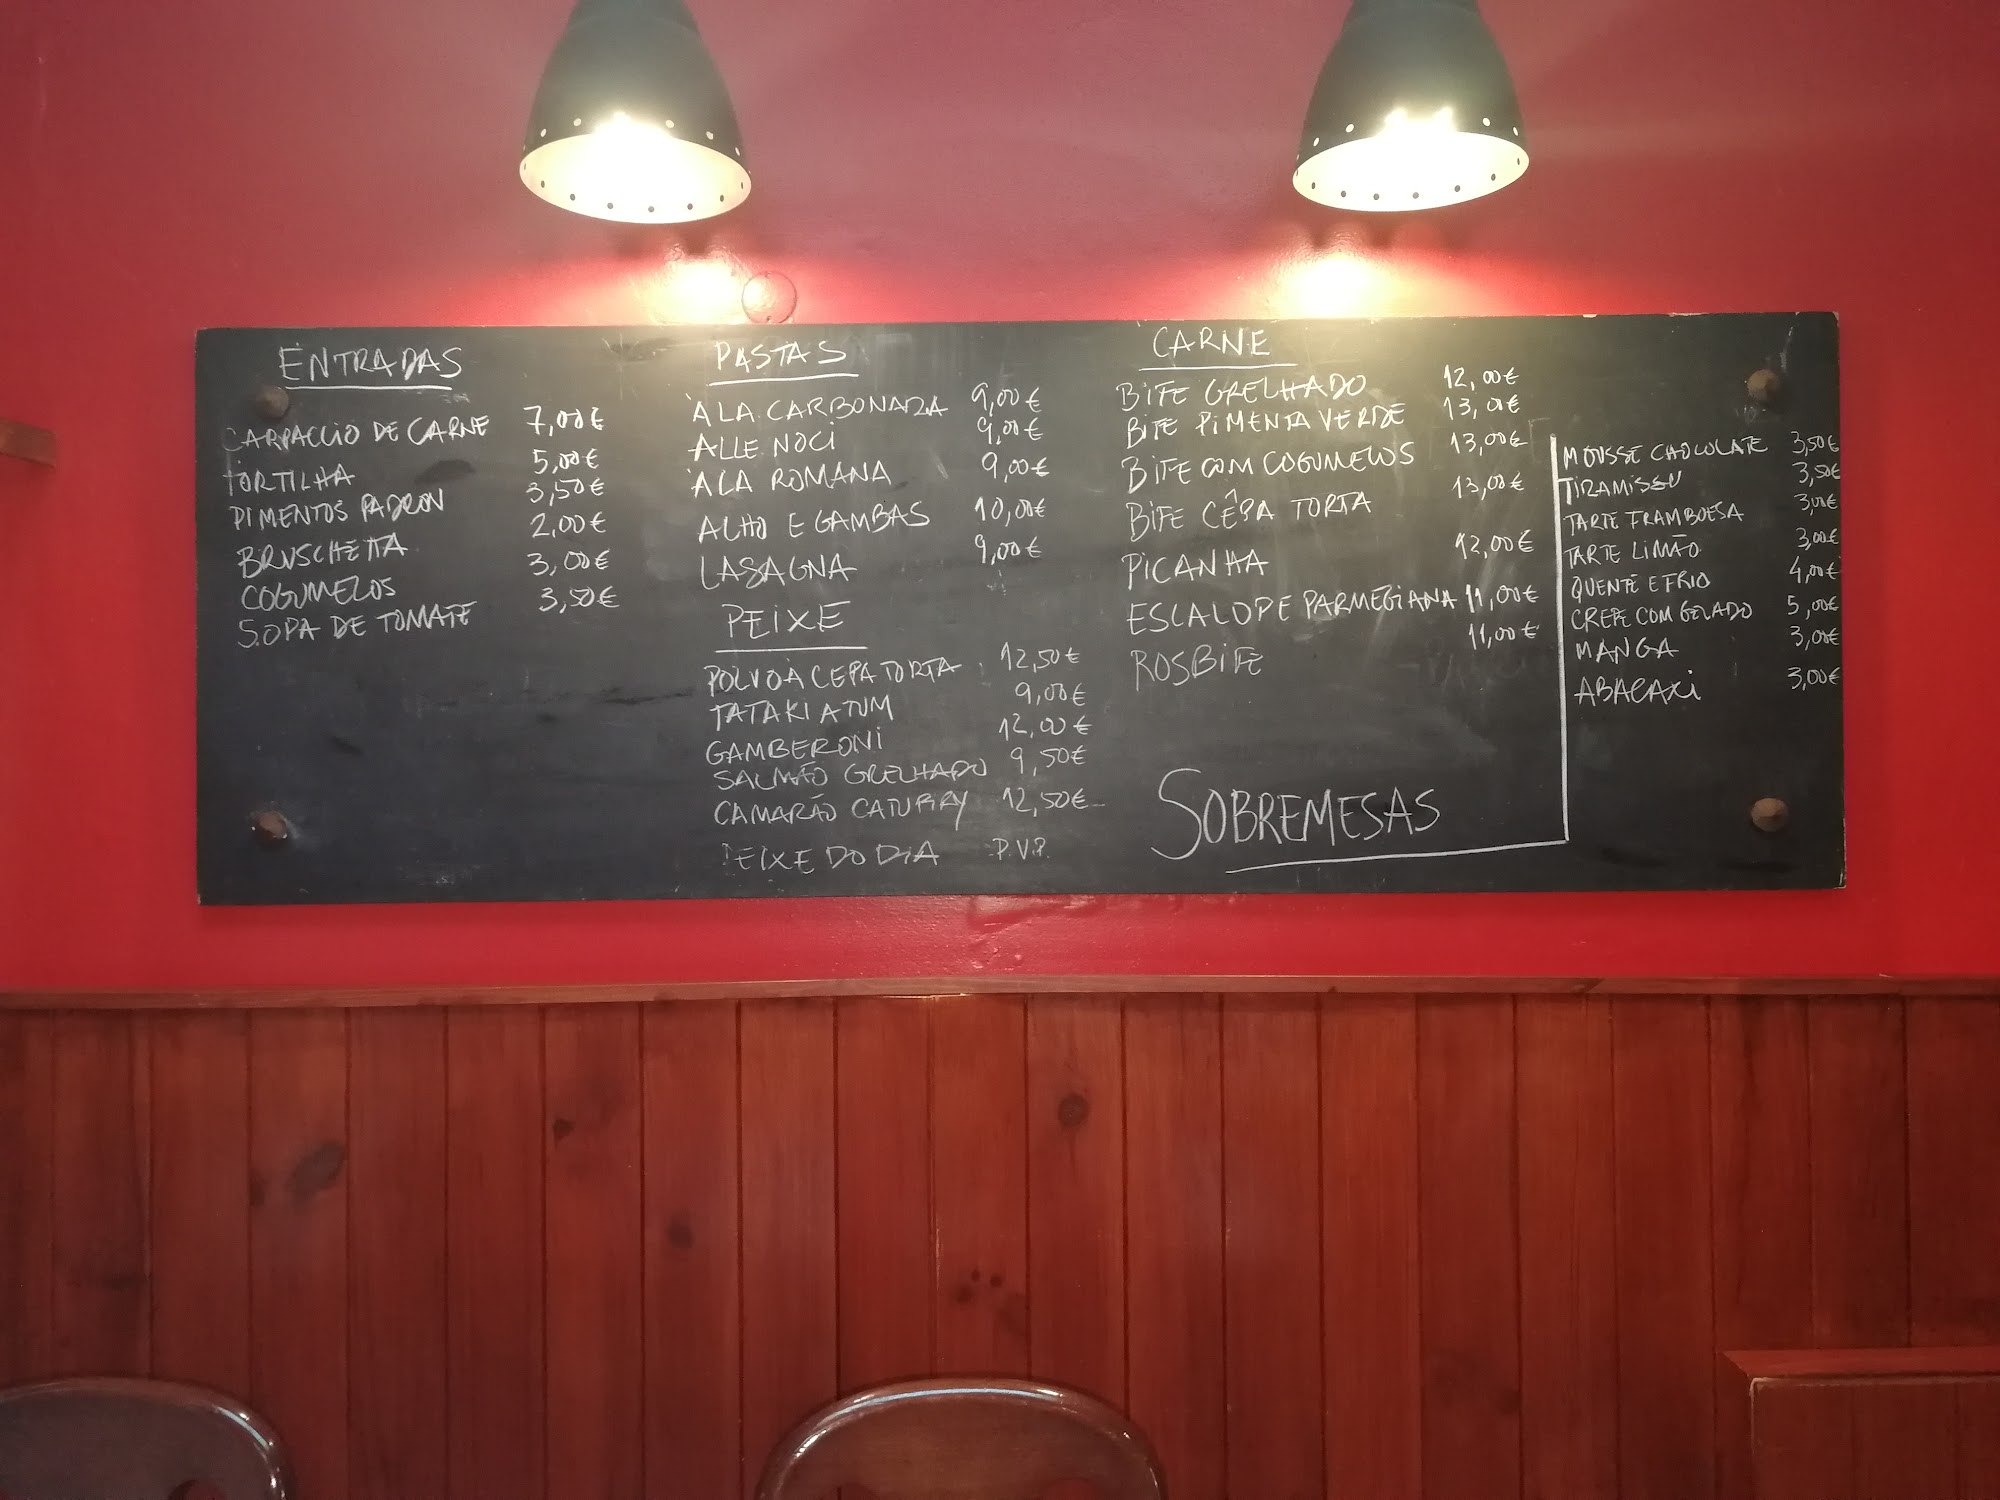 ENTRADAS
CARPACCIO DE CARNE 7,00€
TORTILHA 5,00€
PIMENTOS PADRON 3,50€
BRUSCHETTA 2,00€
COGUMELOS 3,00€
SOPA DE TOMATE 3,50€
PASTAS
À LA CARBONARA 9,00€
ALLE NOCI 9,00€
À LA ROMANA 9,00€
ALHO E GAMBAS 10,00€
LASAGNA 9,00€
PEIXE
POLVO À CEPA TORTA 12,50€
TATAKI ATUM 9,00€
GAMBERONI 12,00€
SALMÃO GRELHADO 9,50€
CAMARÃO CATUPIRY 12,50€
PEIXE DO DIA P.V.P.
CARNE
BIFE GRELHADO 12,00€
BIFE PIMENTA VERDE 13,00€
BIFE COM COGUMELOS 13,00€
BIFE CÊPA TORTA 13,00€
PICANHA 12,00€
ESCALOPE PARMEGIANA 11,00€
ROSBIFE 11,00€
SOBREMESAS
MOUSSE CHOCOLATE 3,50€
TIRAMISSU 3,50€
TARTE FRAMBOESA 3,00€
TARTE LIMÃO 3,00€
QUENTE E FRIO 4,00€
CREPE COM GELADO 5,00€
MANGA 3,00€
ABACAXI 3,00€